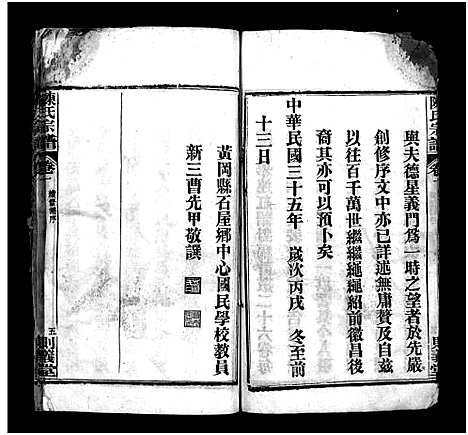 陳氏宗譜
卷一
則義堂
與夫德星義門爲一時之望者於先嚴
創修序文中亦已詳述無庸贅及自茲
以往百千萬世繼繼繩繩紹前徽昌後
裔其亦可以預卜矣
中華民國三十五年 歲次丙戌 冬至前
十三日
黃岡縣石屋鄉中心國民學校教員
新三曹先甲敬譔
陳氏宗譜
卷一
續當湖序
五
則義堂